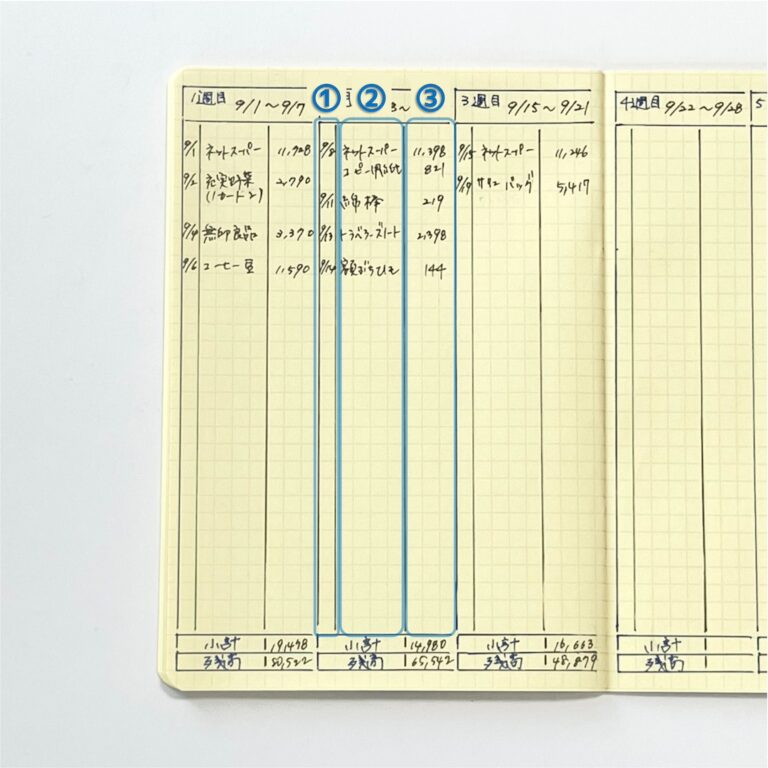 1週目 9/1～9/7
9/1 ネットスーパー 11,728
9/2 充実野菜 2,790
(1カートン)
9/4 無印良品 3,370
9/6 コーヒー豆 1,590
小計 19,478
残高 80,522
① ② ③
9/8 ネットスーパー 11,398
コピー用紙 821
9/11 綿棒 219
9/13 トラベラーズノート 2,398
9/14 額ぶちひも 144
小計 14,980
残高 65,542
3週目 9/15～9/21
9/15 ネットスーパー 11,246
バッグ 5,417
小計 16,663
残高 48,879
4週目 9/22～9/28
小計
残高
5